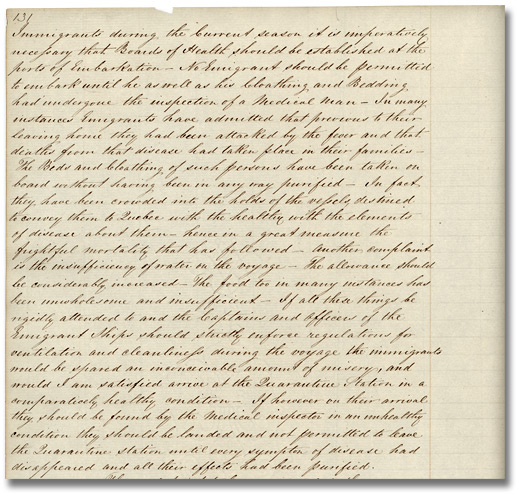 131
Immigrants during the current season it is imperatively
necessary that Boards of Health should be established at the
ports of Embarkation – No Emigrant should be permitted
to embark until he as well as his Cloathing and Bedding
had undergone the inspection of a Medical Man – In many
instances Emigrants have admitted that previous to their
leaving home they had been attacked by the fever and that
deaths from that disease had taken place in their families –
The Beds and Cloathing of such persons have been taken on
board without having been in any way purified – In fact
they have been crowded into the holds of the vessels destined
to convey them to Quebec with the healthy, with the elements
of disease about them – hence in a great measure the
frightful mortality that has followed – Another complaint
is the insufficiency of water on the voyage – The allowance should
be considerably increased – The food too in many instances has
been unwholesome and insufficient – If all these things be
rigidly attended to and the Captains and Officers of the
Emigrant Ships should strictly enforce regulations for
ventilation and cleanliness during the voyage the immigrants
would be spared an inconceivable amount of misery, and
would I am satisfied arrive at the Quarantine Station in a
comparatively healthy condition – If however on their arrival
they should be found by the Medical inspector in an unhealthy
condition they should be landed and not permitted to leave
the Quarantine station until every symptom of disease had
disappeared and all their effects had been purified.